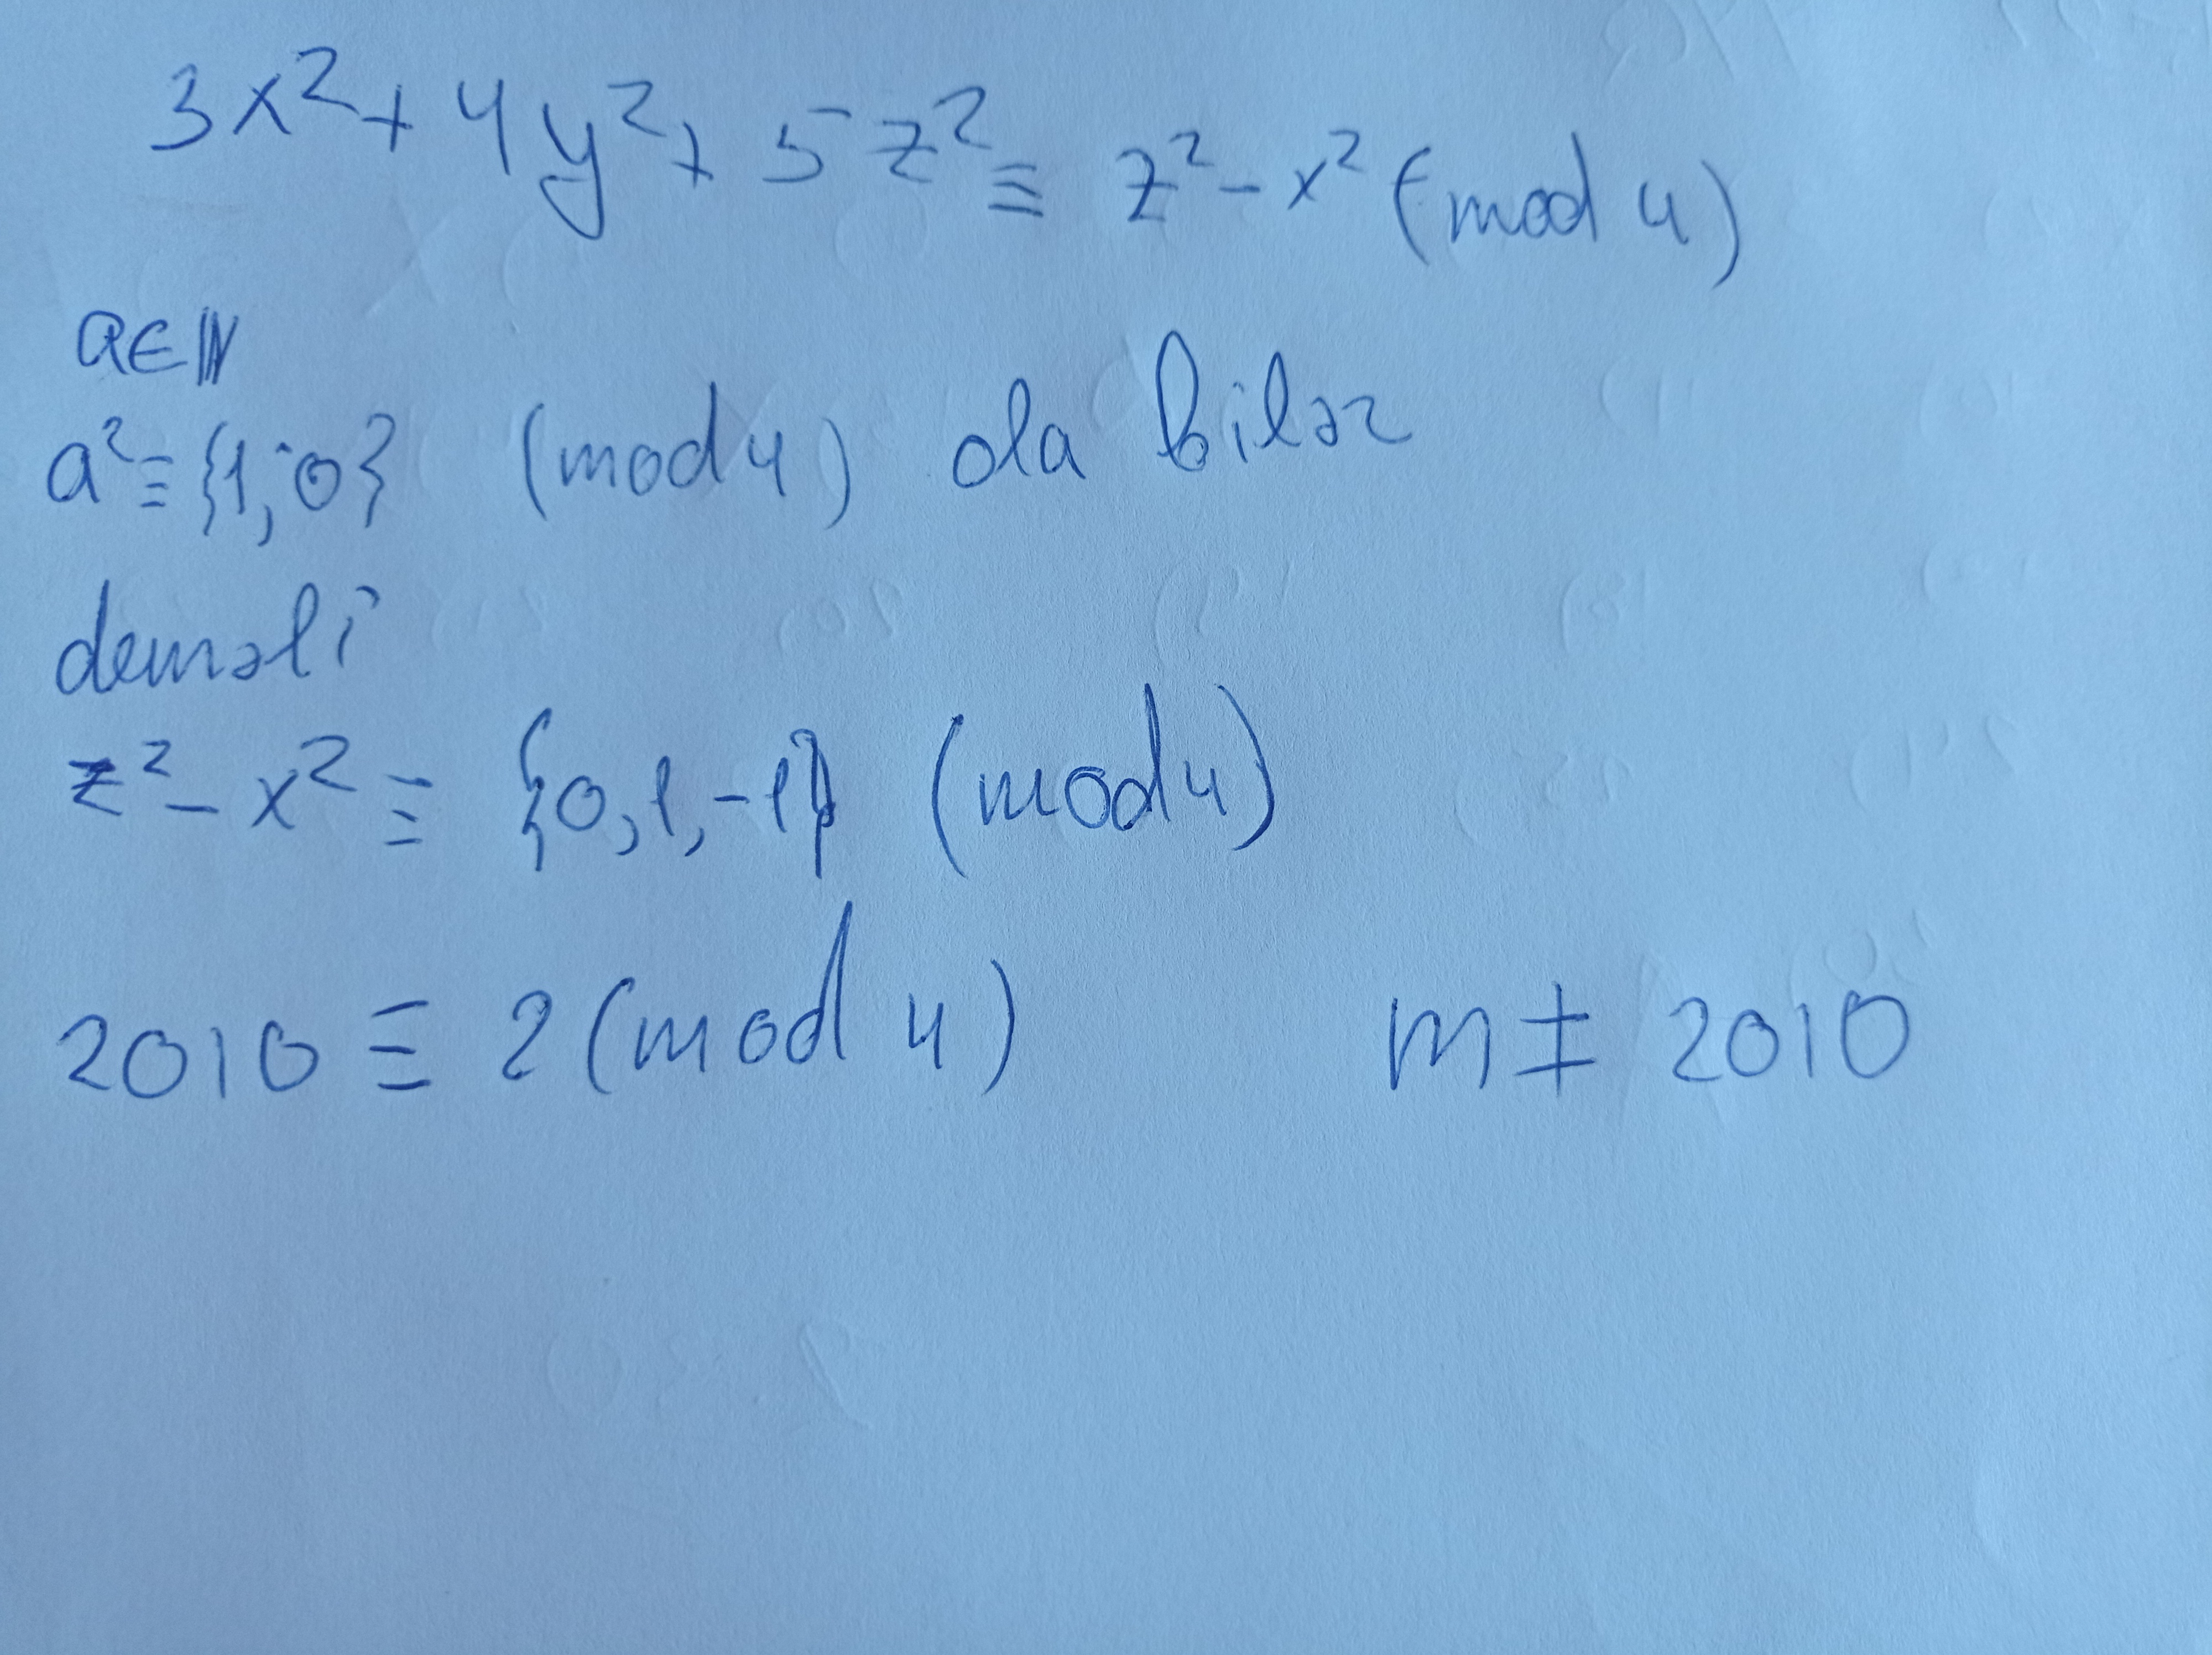 3x²+4y²+5z²≡ z²-x² (mod 4)
a∈ℕ
a²≡{1;0} (mod 4) ola bilər
deməli
z²-x²≡ {0,1,-1} (mod 4)
2010 ≡ 2 (mod 4) m ≠ 2010